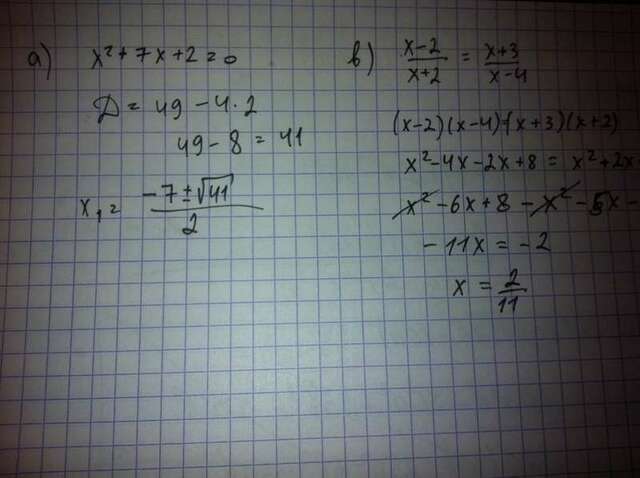 а) x² + 7x + 2 = 0
D = 49 - 4·2
49 - 8 = 41
x₁ = (-7 ± √41)/2
в) (x-2)/(x+2) = (x+3)/(x-4)
(x-2)(x-4) - (x+3)(x+2)
x² - 4x - 2x + 8 = x² + 2x
x² - 6x + 8 - x² - 5x -
- 11x = -2
x = 2/11